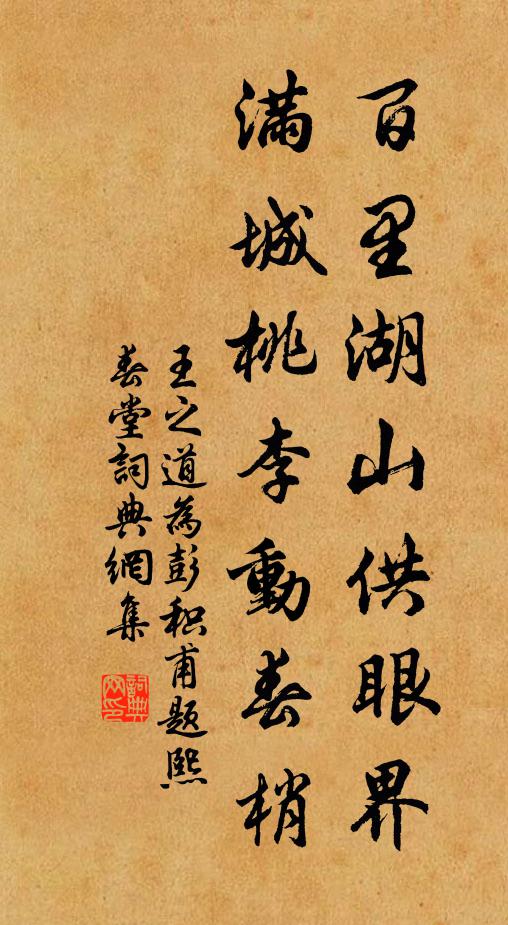 百里湖山供眼界
滿城桃李動春梢
王之道為彭积甫題熙
春堂詞典網集
詞典網印